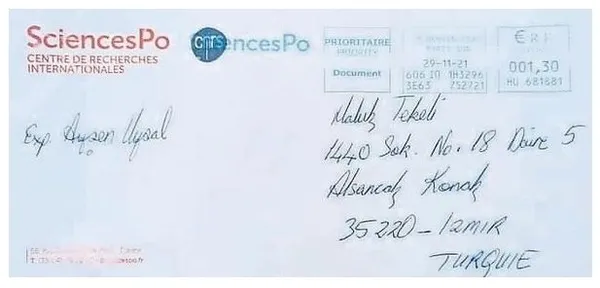 SciencesPo
CENTRE DE RECHERCHES
INTERNATIONALES
cnrs
SciencesPo
PRIORITAIRE
PRIORITY
Document
29-11-21
606 IO 1H3296
3E63 752721
€ R.F.
001,30
HU 681881
Exp. Ayşen Uysal
Haluk Tekeli
1440 Sok. No. 18 Daire 5
Alsancak Konak
35220 - IZMIR
TURQUIE